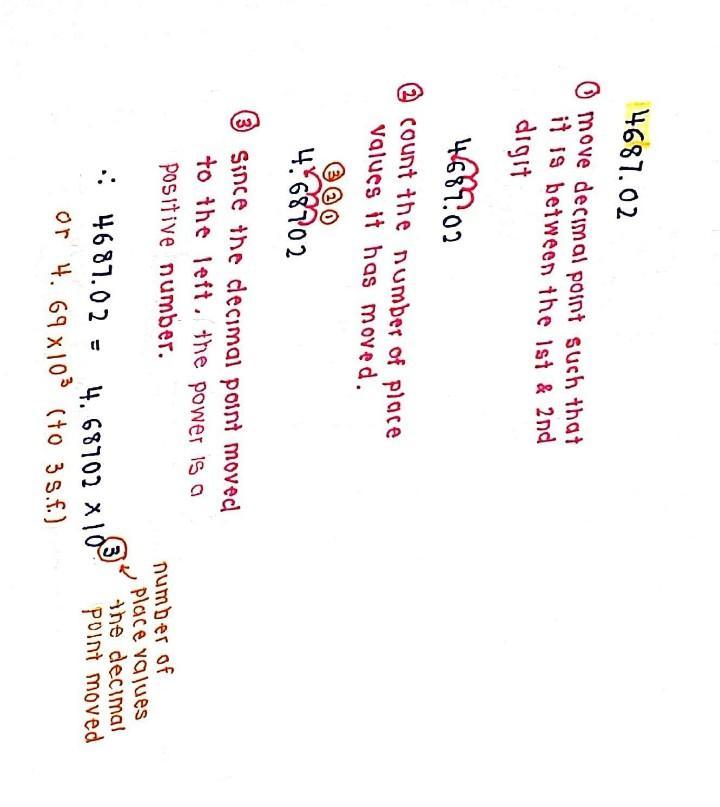 4687.02
① move decimal point such that
it is between the 1st & 2nd
digit
4687.02
② count the number of place
values it has moved.
③②①
4.68702
③ since the decimal point moved
to the left, the power is a
positive number.
∴ 4687.02 = 4.68702 x 10³
number of
place values
the decimal
point moved
or 4.69 x 10³ (to 3 s.f.)